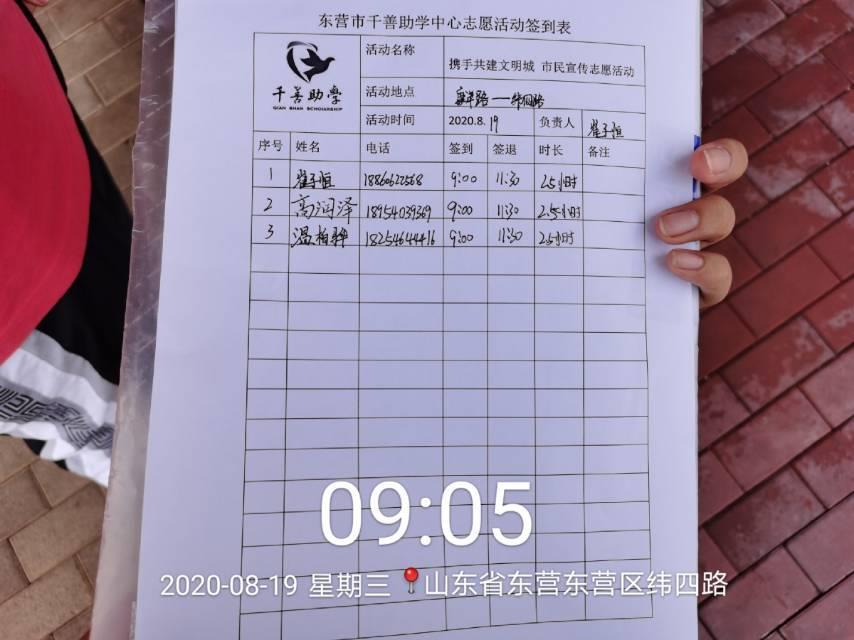 东营市千善助学中心志愿活动签到表
千善助学
QIAN SHAN SCHOLARSHIP
活动名称 携手共建文明城 市民宣传志愿活动
活动地点 路——纬四路
活动时间 2020.8.19 负责人 崔子恒
序号 姓名 电话 签到 签退 时长 备注
1 崔子恒 18860622568 9:00 11:30 2.5小时
2 高润泽 18954039369 9:00 11:30 2.5小时
3 温柏骅 18254644416 9:00 11:30 2.5小时
09:05
2020-08-19 星期三 山东省东营东营区纬四路